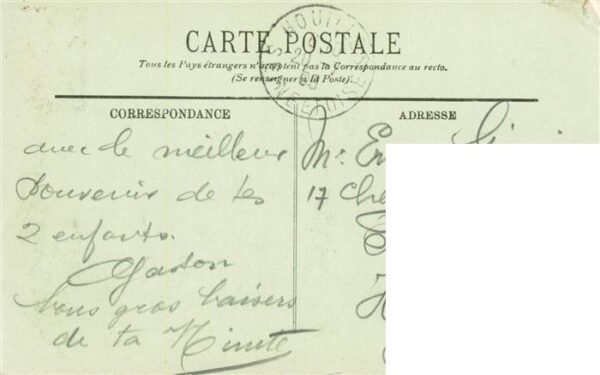 CARTE POSTALE
Tous les Pays étrangers n'acceptent pas la Correspondance au recto.
(Se renseigner à la Poste).
CORRESPONDANCE
ADRESSE
avec le meilleur
souvenir de tes
2 enfants.
Gaston
bons gros baisers
de ta Ninete
Mr
17
SEINE ET OISE